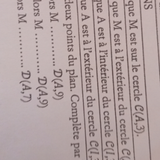 NS
que M est sur le cercle C(A,3).
que M est à l'extérieur du cercle
que A est à l'intérieur du cercle C(I,
e A est à l'extérieur du cercle C(I,
deux points du plan. Complète par
lors M ........ D(A,9)
lors M ........ D(A,9)
lors M ........ D(A,7)